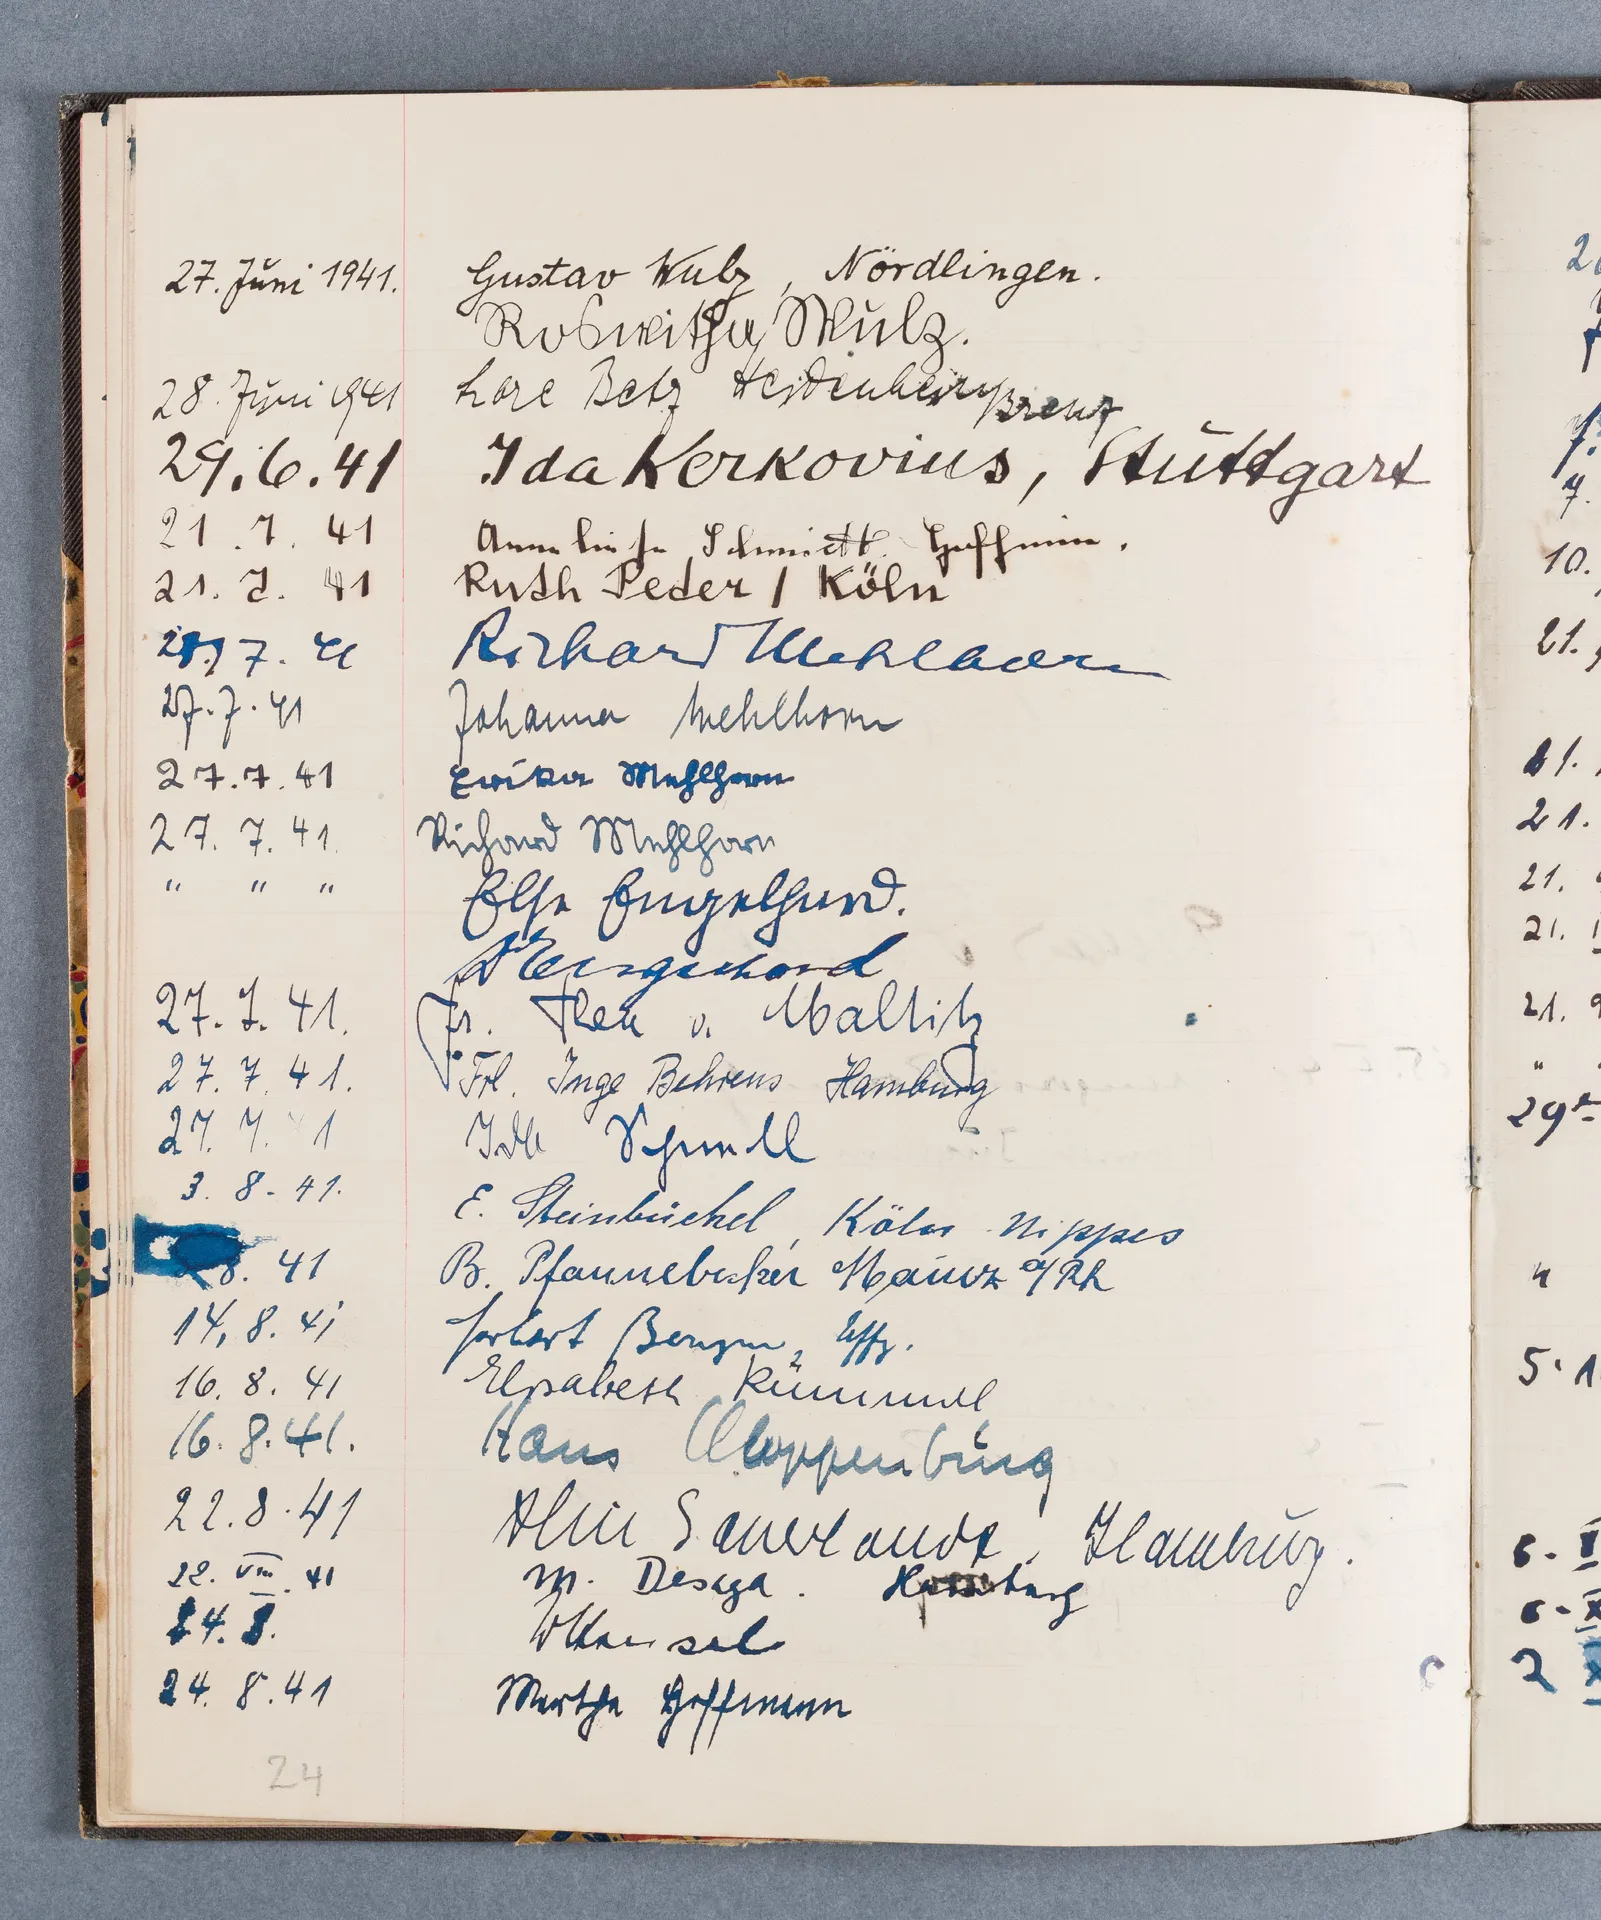 27. Juni 1941. Gustav Wulz, Nördlingen.
Roswitha Wulz.
28. Juni 1941 Lore Betz Heidenheim/Brenz
29.6.41 Ida Kerkovius, Stuttgart
21. 7. 41 Anneliese Schmidt
21. 7. 41 Ruth Peder / Köln
7. 41 Richard Mehlhorn
27.7.41 Johanna Mehlhorn
27.7.41 Erika Mehlhorn
27. 7. 41. Richard Mehlhorn
" " " Else Engelhard.
Engelhard
27. 7. 41. Fr. Thea v. Maltitz
27. 7. 41. Frl. Inge Behrens Hamburg
27. 7. 1
3. 8. 41. E. Steinbüchel, Köln-Nippes
8. 41 B. Pfannebecker Mainz a/Rh
14. 8. 41 Herbert
16. 8. 41 Elisabeth Kümmel
16. 8. 41. Hans Cloppenburg
22. 8. 41 Alice Sauerlandt, Hamburg.
22. VIII. 41 M. Desaga. Hamburg
24. 8.
24. 8. 41 Martha Hoffmann
24
10.
21.
21.
21.
21.
21.
21.
"
29
5. 1
6.
6.
2